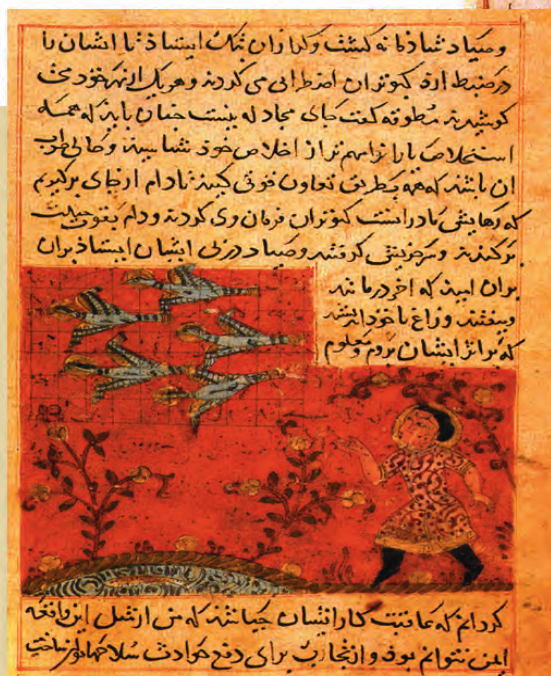 و صیاد شاذمانه گشت و گرازان بتک ایستاذ تا ایشان را
در ضبط ارد کبوتران اضطرابی می کردند و هر یک از بهر خود می
کوشیدند مطوقه گفت جای مجادله نیست چنان باید که همه
استخلاص یاران را مهم تر از اخلاص خود شناسند و حالی صواب
ان باشد که همه بطریق تعاون قوتی کنید تا دام از جای برگیریم
که رهایش ما در انست کبوتران فرمان وی کردند و دام بقوت
برکندند و سر خویش گرفتند و صیاد در پی ایشان ایستاذ بران
بران امید که اخر درمانند
و بیفتند و زاغ با خود اندیشید
که بر اثر ایشان بروم و معلوم
گردانم که عاقبت کار ایشان چه باشد که من از مثل این واقعه
ایمن نتوانم بود و از تجارب برای دفع حوادث سلاحها توان ساخت